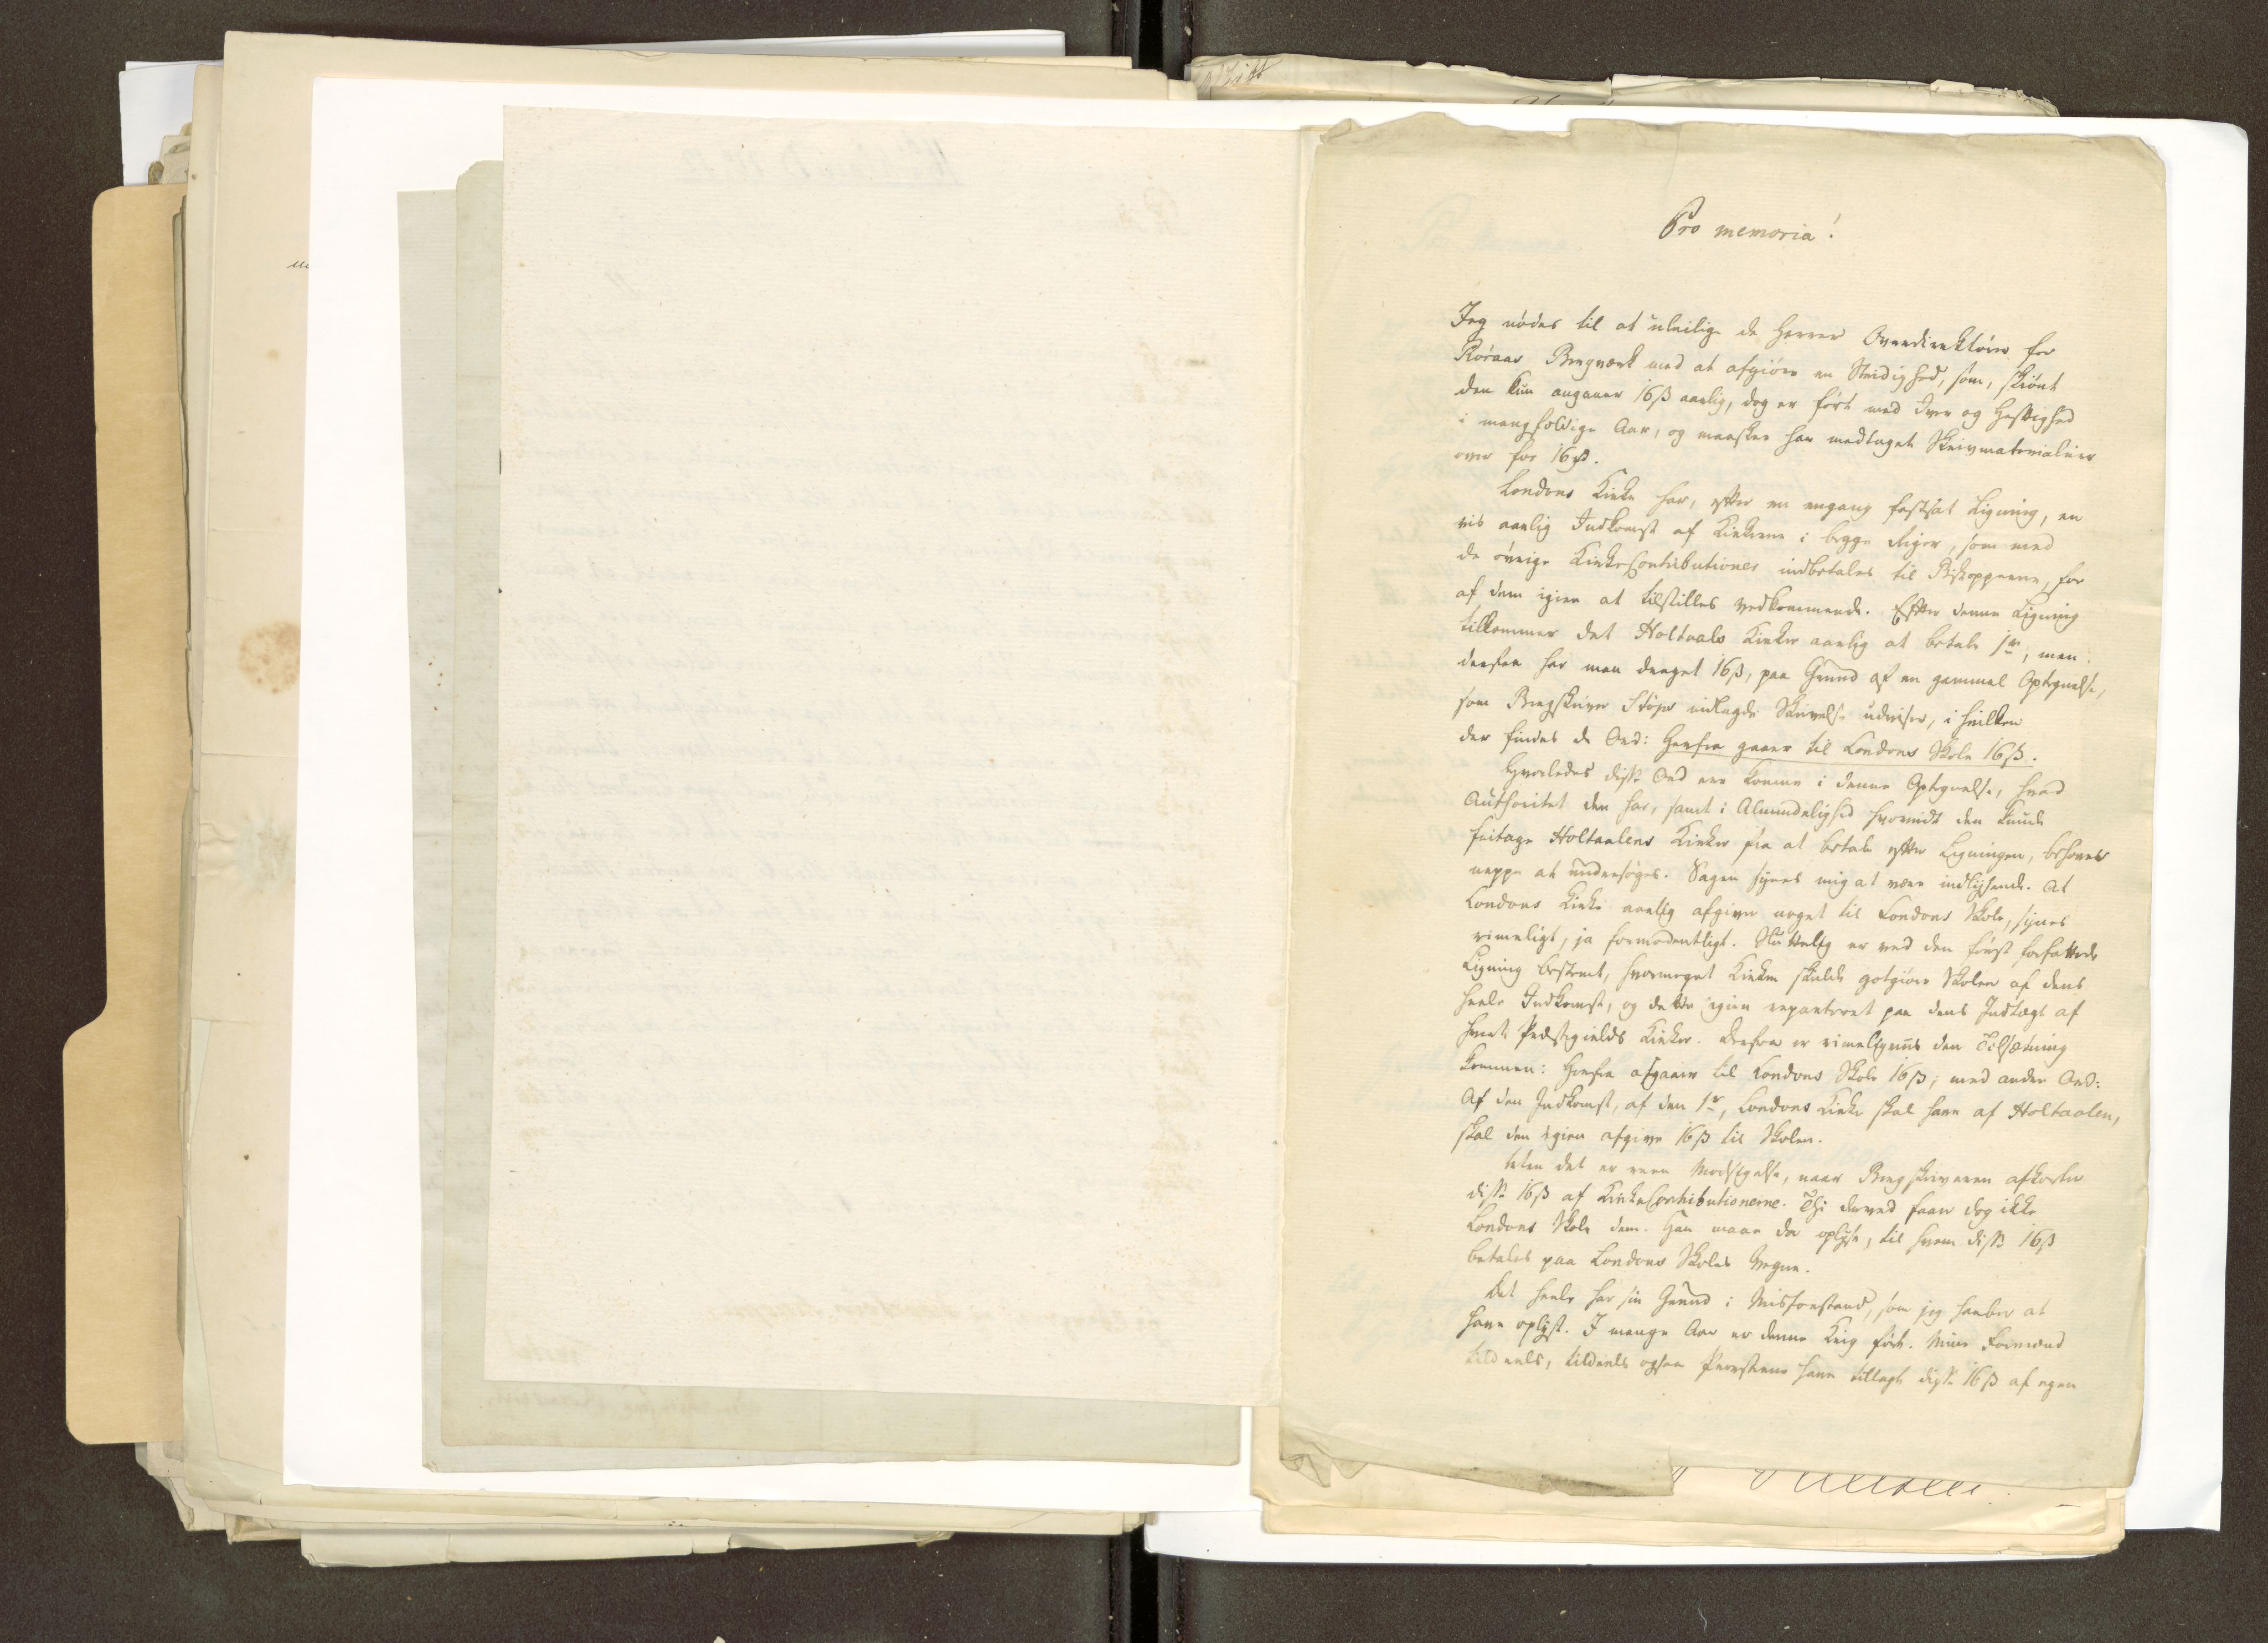 Pro memoria!
Jeg nödes til at uleilige de Herrer Overdirektörer for
Röraas Bergverk med at afgiöre en Stridighed, som, skiönt
den kun angaaer 16ß aarlig, dog er fört med Iver og Heftighed
i mangfoldige Aar, og maaskee har medtaget Skrivmaterialier
over for 16ß.
Londons Kirke har, efter en engang fastsat Ligning, en
vis aarlig Indkomst af Kirkerne i begge Riger, som med
de övrige KirkeContributioner indbetales til Biskopperne, for
af dem igien at tilstilles vedkommende. Efter denne Ligning
tilkommer det Holtaals Kirker aarlig at betale 1r, men
derfra har man draget 16ß, paa Grund af en gammel Optegnelse,
som Bergskriver Flörs indlagde Skrivelse udviser, i hvilken
der findes de Ord: Herfra gaaer til Londons Skole 16ß.
Hvorledes disse Ord ere komne i denne Optegnelse, hvad
Authoritet den har, samt i Almindelighed hvorvidt den kunde
fritage Holtaalens Kirker fra at betale efter Ligningen, behöves
neppe at undersöges. Sagen synes mig at være indlysende. At
Londons Kirke aarlig afgiver noget til Londons Skole, synes
rimeligt, ja formodentligt. Slutteligt er ved den först forfattede
Ligning bestemt, hvormeget Kirken skulde godtgiöre Skolen af dens
heele Indkomst, og dette igien reparteret paa dens Indtægt af
hvert Præstegields Kirker. Derfra er rimeligviis den Tilsætning
kommen: herfra afgaaer til Londons Skole 16ß; med andre Ord:
Af den Indkomst, af den 1r, Londons Kirke skal have af Holtaalen,
skal den igien afgive 16ß til Skolen.
Men det er reen Modsigelse, naar Bergskriveren afkorter
disse 16ß af KirkeContributionerne. Thi derved faaer dog ikke
Londons Skole dem. Han maae da oplyse, til hvem disse 16ß
betales paa Londons Skoles Vegne.
Det heele har sin Grund i Misforstand, som jeg haaber at
have oplyst. I mange Aar er denne Krig fört. Mine Formænd
tildeels, tildeels ogsaa Provsterne have tillagt disse 16ß af egen